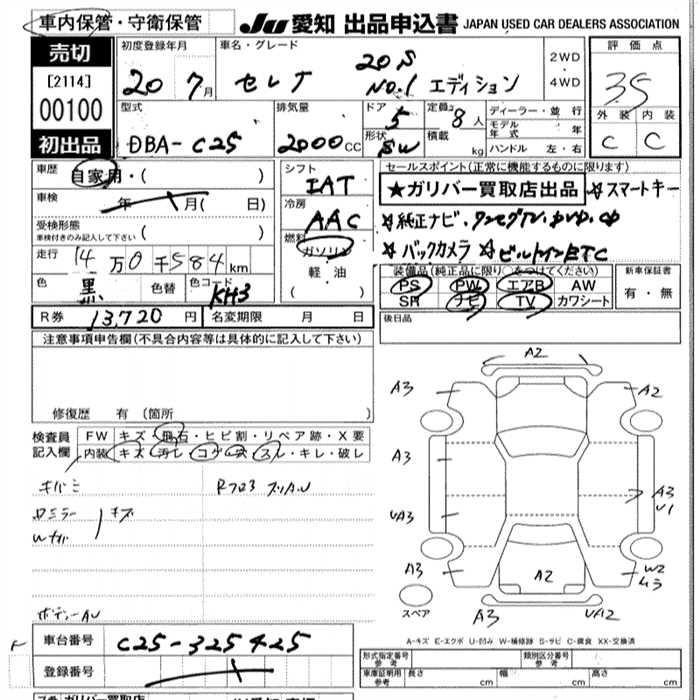 車内保管・守衛保管
JU 愛知 出品申込書 JAPAN USED CAR DEALERS ASSOCIATION
売切
[2114]
00100
初出品
初度登録年月
20 7月
車名・グレード
セレナ 20S
No.1 エディション
2WD
・
4WD
評価点
3.5
外装 内装
C C
型式
DBA-C25
排気量
2000CC
ドア
5
形状
SW
定員
8人
積載
kg
ディーラー・並行
モデル年式 年
ハンドル 左・右
車歴
自家用・( )
車検
年 月( 日)
受検形態
車検付きのみ記入して下さい ( )
走行
14万0千584km
色
黒
色替
色コード
KH3
シフト
IAT
冷房
AAC
燃料
ガソリン
軽・油
( )
セールスポイント(正常に機能するものに限ります)
★ガリバー買取店出品 ☆スマートキー
☆純正ナビ・ワンセグTV・DVD・CD
☆バックカメラ ☆ビルトインETC
装備品(純正品に限り○をつけてください)
PS PW エアB AW
SR ナビ TV カワシート
新車保証書
有・無
R券 13,720円 名変期限 月 日
後日品
注意事項申告欄(不具合内容等は具体的に記入して下さい)
修復歴 有 (箇所 )
検査員記入欄
FW キズ・飛石・ヒビ割・リペア跡・X要
内装 キズ・汚レ・コゲ・スレ・キレ・破レ
A2
A3 A2
A3
A3
U1
UA3
A3 A2 W2
A3 UA12
スペア
A-キズ E-エクボ U-凹み W-補修跡 S-サビ C-腐食 XX-交換済
車台番号 C25-325425
登録番号
形式指定番号 参考
類別区分番号 参考
車庫証明用 参考 長さ cm 幅 cm 高さ cm